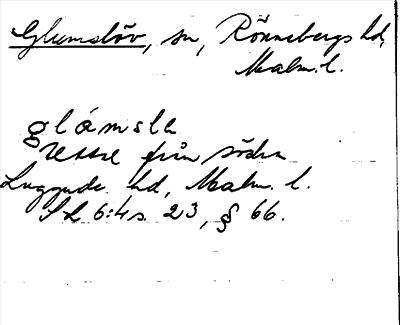 Glumslöv, sn, Rönnebergs hd,
Malm. l.
glámsle
Uttal från södra
Luggude hd, Malm. l.
SL 6:4 s. 23, § 66.